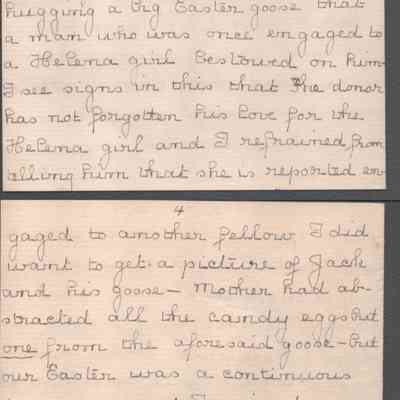 hugging a big Easter goose that
a man who was once engaged to
a Helena girl bestowed on him.
I see signs in this that the donor
has not forgotten his love for the
Helena girl and I refrained from
telling him that she is reported en-
4
gaged to another fellow I did
want to get a picture of Jack
and his goose – Mother had ab-
stracted all the candy eggs but
one from the aforesaid goose – but
our Easter was a continuous